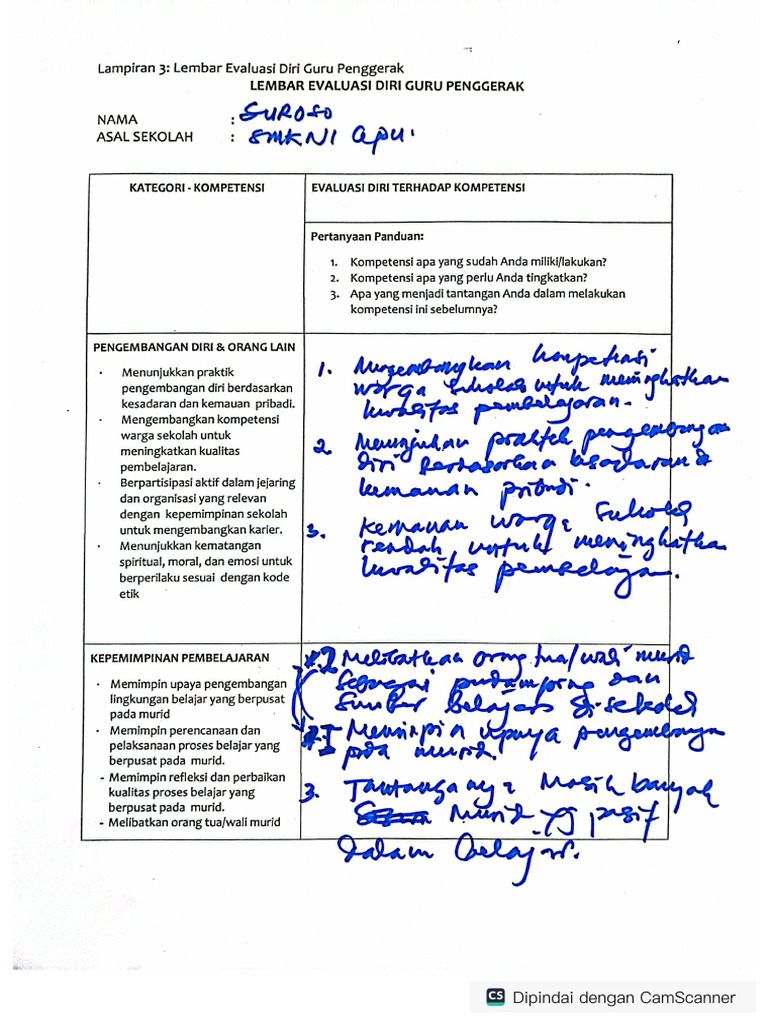 Lampiran 3: Lembar Evaluasi Diri Guru Penggerak
LEMBAR EVALUASI DIRI GURU PENGGERAK
NAMA : SUROSO
ASAL SEKOLAH : SMKN1
KATEGORI - KOMPETENSI
EVALUASI DIRI TERHADAP KOMPETENSI
Pertanyaan Panduan:
1. Kompetensi apa yang sudah Anda miliki/lakukan?
2. Kompetensi apa yang perlu Anda tingkatkan?
3. Apa yang menjadi tantangan Anda dalam melakukan
kompetensi ini sebelumnya?
PENGEMBANGAN DIRI & ORANG LAIN
· Menunjukkan praktik
pengembangan diri berdasarkan
kesadaran dan kemauan pribadi.
· Mengembangkan kompetensi
warga sekolah untuk
meningkatkan kualitas
pembelajaran.
· Berpartisipasi aktif dalam jejaring
dan organisasi yang relevan
dengan kepemimpinan sekolah
untuk mengembangkan karier.
· Menunjukkan kematangan
spiritual, moral, dan emosi untuk
berperilaku sesuai dengan kode
etik
1. Mengembangkan
warga sekolah untuk meningkatkan
kualitas pembelajaran.
2. praktek pengembangan
diri & 
kemauan pribadi.
3. Kemauan warga sekolah
rendah untuk meningkatkan
kualitas
KEPEMIMPINAN PEMBELAJARAN
· Memimpin upaya pengembangan
lingkungan belajar yang berpusat
pada murid
· Memimpin perencanaan dan
pelaksanaan proses belajar yang
berpusat pada murid.
- Memimpin refleksi dan perbaikan
kualitas proses belajar yang
berpusat pada murid.
- Melibatkan orang tua/wali murid
2 Melibatkan orang tua/wali murid
sebagai pendamping dan
Sumber belajar di sekolah
1 Memimpin upaya pengembangan
pada murid.
3. Tantangannya Masih banyak
Murid yg pasif
dalam belajar.
CS Dipindai dengan CamScanner